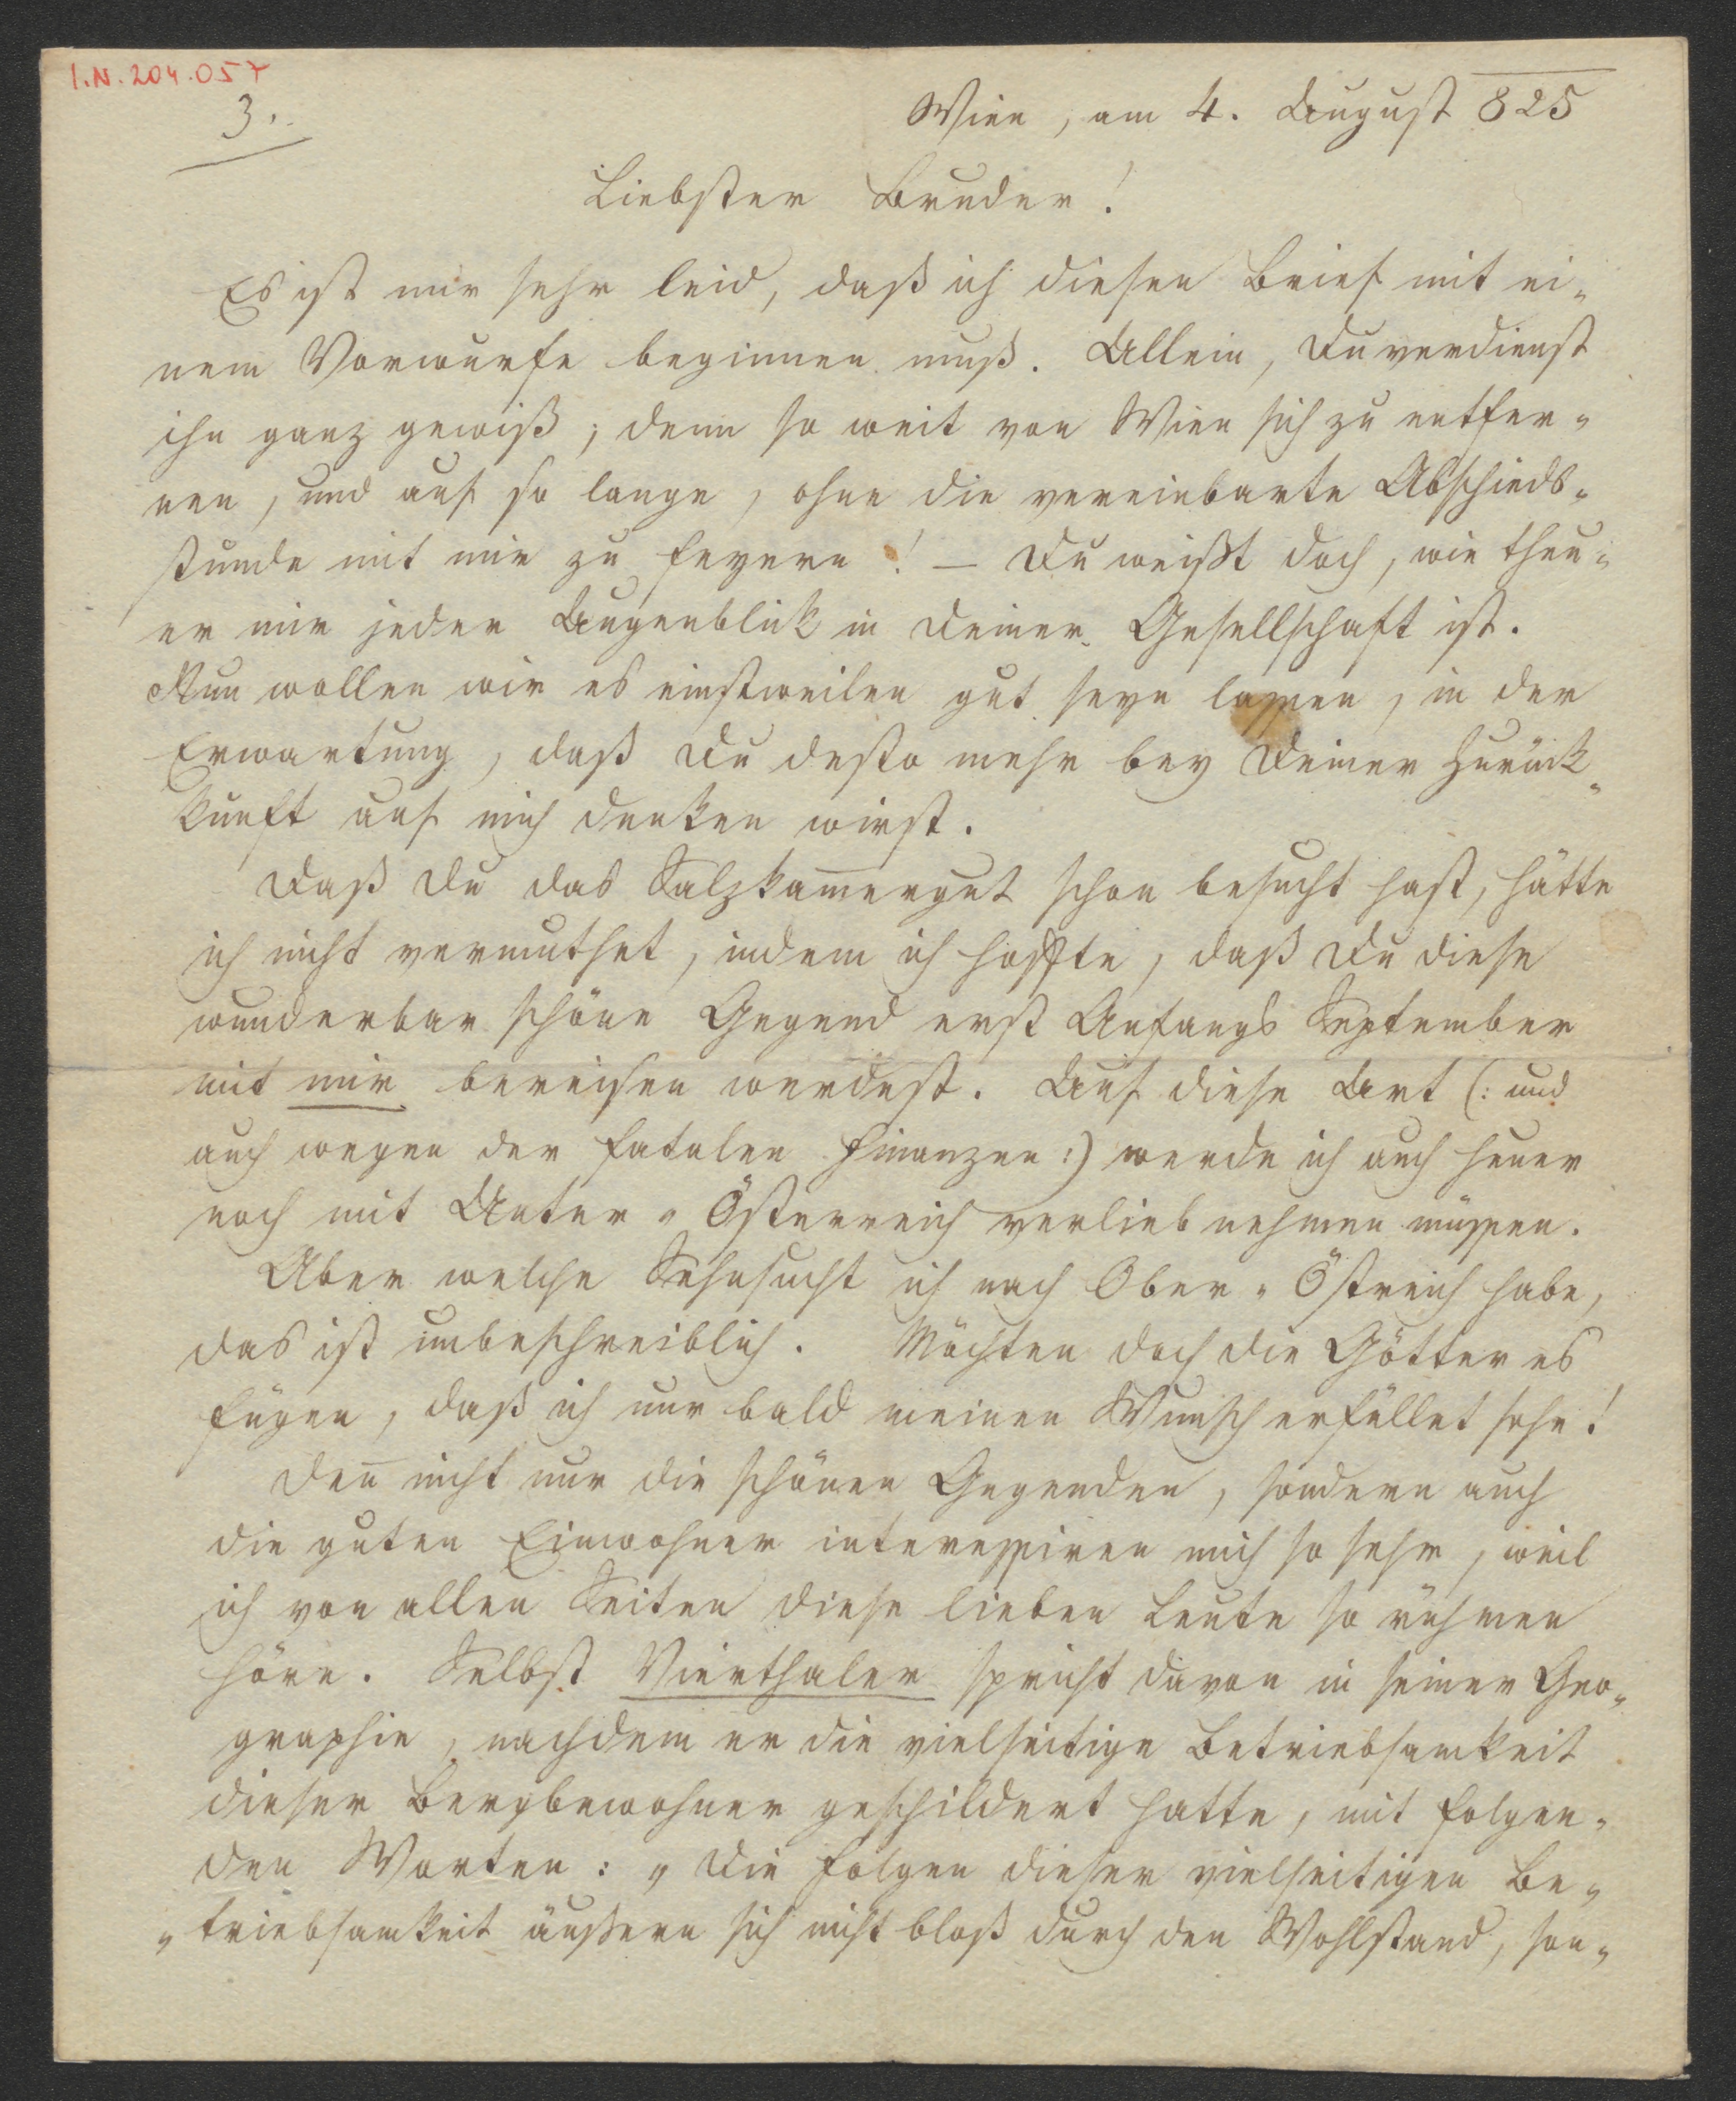 I.N. 204.057
3.
Wien, am 4. August 825
Liebster Bruder!
Es ist mir sehr leid, daß ich diesen Brief mit ei-
nem Vorwurfe beginnen muß. Allein, Du verdienst
ihn ganz gewiß; denn so weit von Wien sich zu entfer-
nen, und auf so lange, ohne die vereinbarte Abschieds-
stunde mit mir zu feyern! – Du weißt doch, wie theu-
er mir jeder Augenblick in Deiner Gesellschaft ist.
Nun wollen wir es einstweilen gut seyn lassen, in der
Erwartung, daß Du desto mehr bey Deiner Zurück-
kunft auf mich denken wirst.
Daß Du das Salzkam̅ergut schon besucht hast, hätte
ich nicht vermuthet, indem ich hoffte, daß Du diese
wunderbar schöne Gegend erst Anfangs September
mit mir bereisen werdest. Auf diese Art (: und
auch wegen der fatalen Finanzen :) werde ich auch heuer
noch mit Unter-Österreich verlieb nehmen müssen.
Aber welche Sehnsucht ich nach Ober-Östreich habe,
das ist unbeschreiblich. Möchten doch die Götter es
fügen, daß ich nur bald meinen Wunsch erfüllet sehe!
Den̅ nicht nur die schönen Gegenden, sondern auch
die guten Einwohner interessiren mich so sehr, weil
ich von allen Seiten diese lieben Leute so rühmen
höre. Selbst Vierthaler spricht davon in seiner Geo-
graphie, nachdem er die vielseitige Betriebsamkeit
dieser Bergbewohner geschildert hatte, mit folgen-
den Worten: „Die Folgen dieser vielseitigen Be-
„triebsamkeit äußern sich nicht bloß durch den Wohlstand, son-